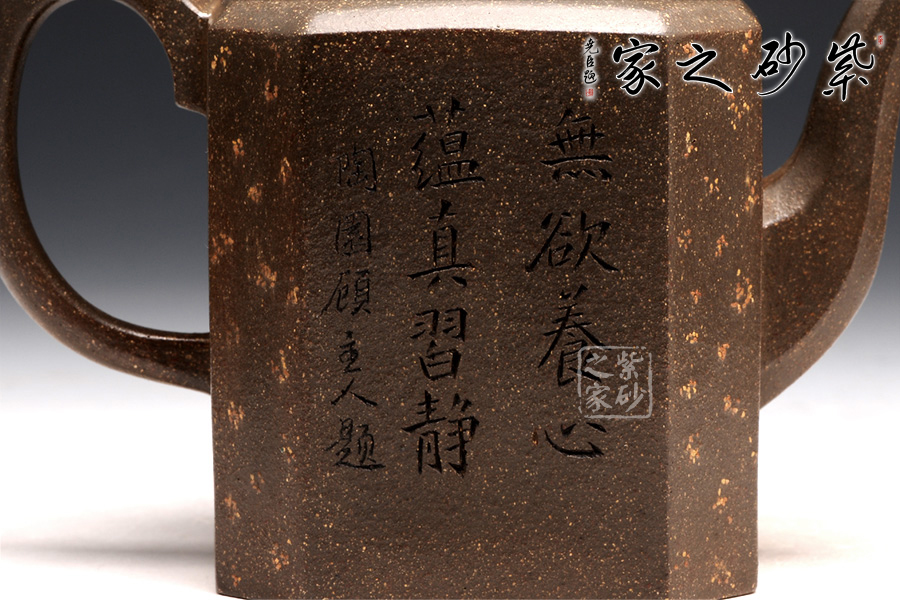 紫砂之家
無欲養心
蕴真習静
陶園顾主人题
紫砂之家